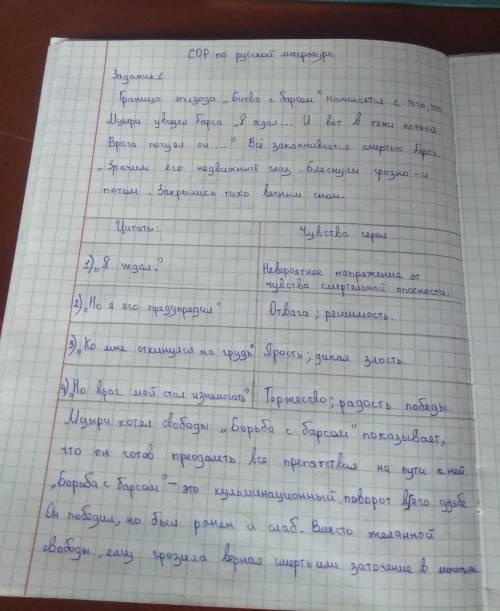 СОР по русской литературе
Задание 1.
Граница эпизода „Битва с барсом" начинается с того, что
Мцыри увидел барса „Я ждал... И вот в тени ночной
Врага почуял он ..." Всё заканчивается смертью барса.
„Зрачки его недвижный глаз. Блеснули грозно – и
потом. Закрылись тихо вечным сном.
Цитаты: Чувства героя
1) „Я ждал." Невероятное напряжение от
чувства смертельной опасности.
2) „Но я его предупредил" Отвага; решимость.
3) „Ко мне откинулся на грудь" Ярость; дикая злость.
4) „Но враг мой стал изнемогать" Торжество; радость победы.
Мцыри хотел свободы „Борьба с барсом" показывает,
что он готов преодолеть все препятствия на пути к ней.
„Борьба с барсом" – это кульминационный поворот в его судьбе
Он победил, но был ранен и слаб. Вместо желанной
свободы, ему грозила верная смерть или заточение в